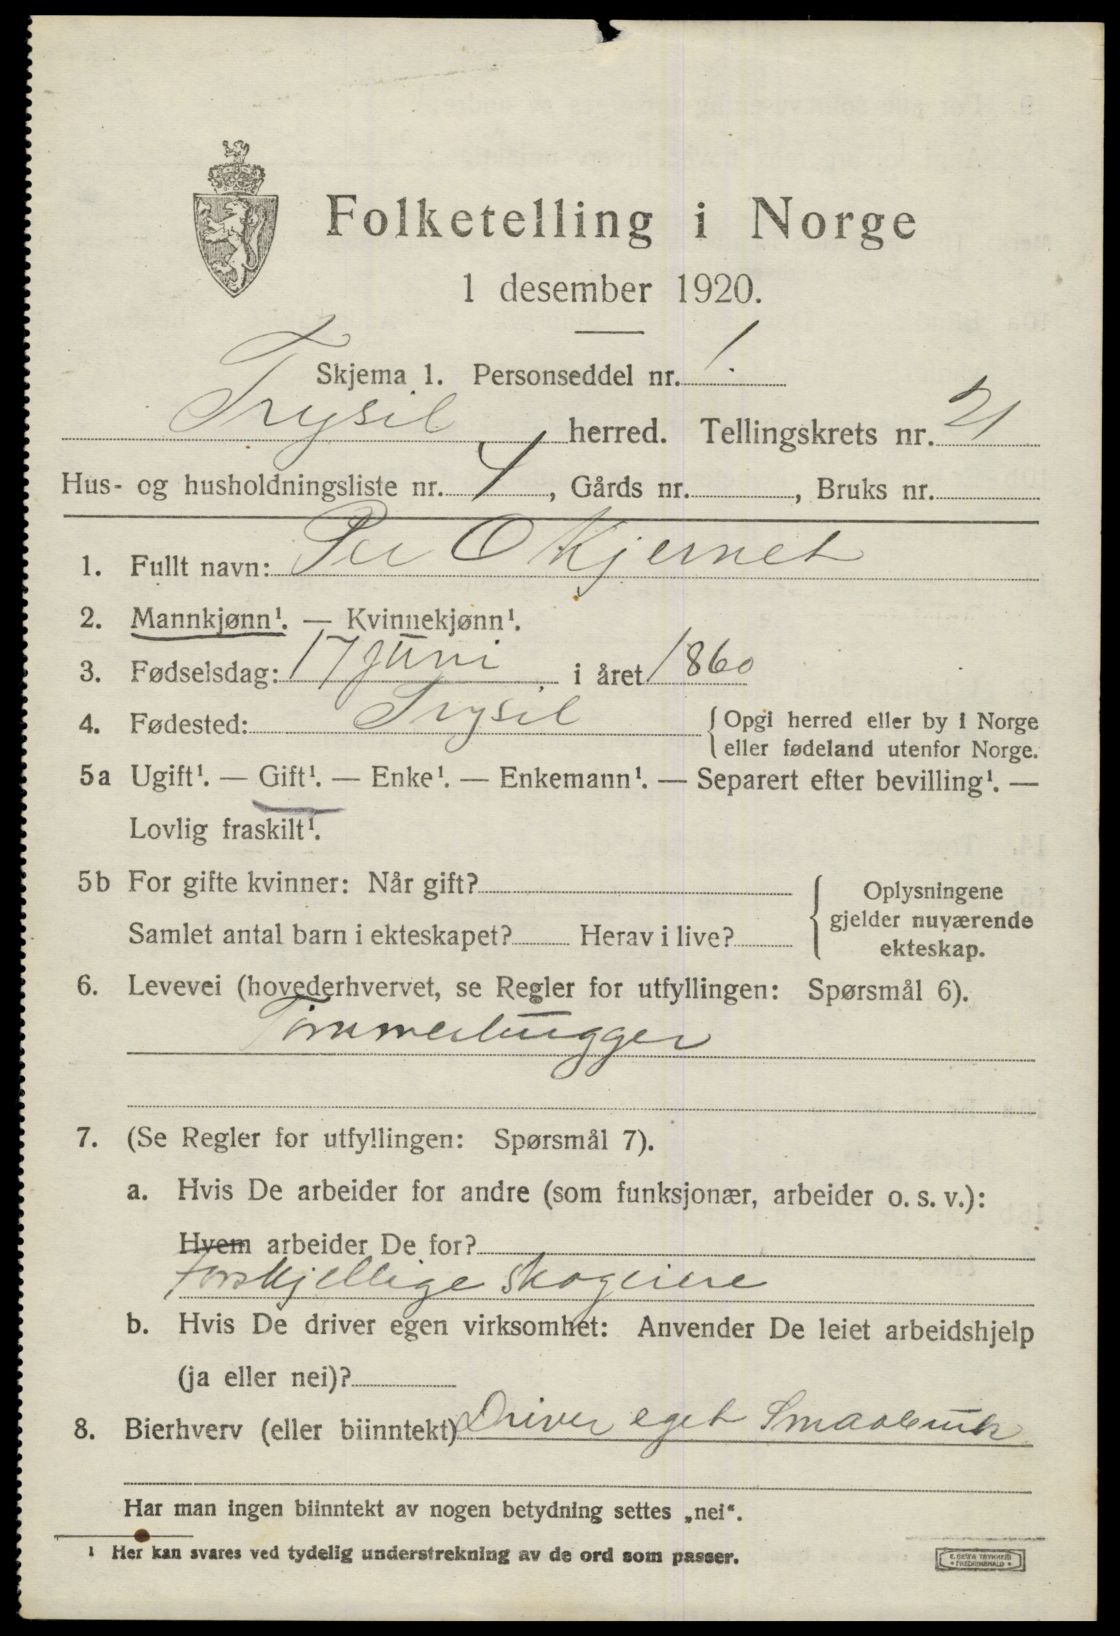 Folketelling i Norge
1 desember 1920.
Skjema 1. Personseddel nr. 1.
Trysil herred. Tellingskrets nr. 21
Hus- og husholdningsliste nr. 4, Gårds nr. , Bruks nr.
1. Fullt navn: Per O Kjernet
2. Mannkjønn¹. — Kvinnekjønn¹.
3. Fødselsdag: 17 juni, i året 1860
4. Fødested: Trysil
Opgi herred eller by i Norge
eller fødeland utenfor Norge.
5a Ugift¹. — Gift¹. — Enke¹. — Enkemann¹. — Separert efter bevilling¹. —
Lovlig fraskilt¹.
5b For gifte kvinner: Når gift?
Samlet antal barn i ekteskapet? Herav i live?
Oplysningene
gjelder nuværende
ekteskap.
6. Levevei (hovederhvervet, se Regler for utfyllingen: Spørsmål 6).
Tømmerhugger
7. (Se Regler for utfyllingen: Spørsmål 7).
a. Hvis De arbeider for andre (som funksjonær, arbeider o. s. v.):
Hvem arbeider De for?
Forskjellige skogeiere
b. Hvis De driver egen virksomhet: Anvender De leiet arbeidshjelp
(ja eller nei)?
8. Bierhverv (eller biinntekt) Driver eget Smaabruk
Har man ingen biinntekt av nogen betydning settes „nei“.
¹ Her kan svares ved tydelig understrekning av de ord som passer.